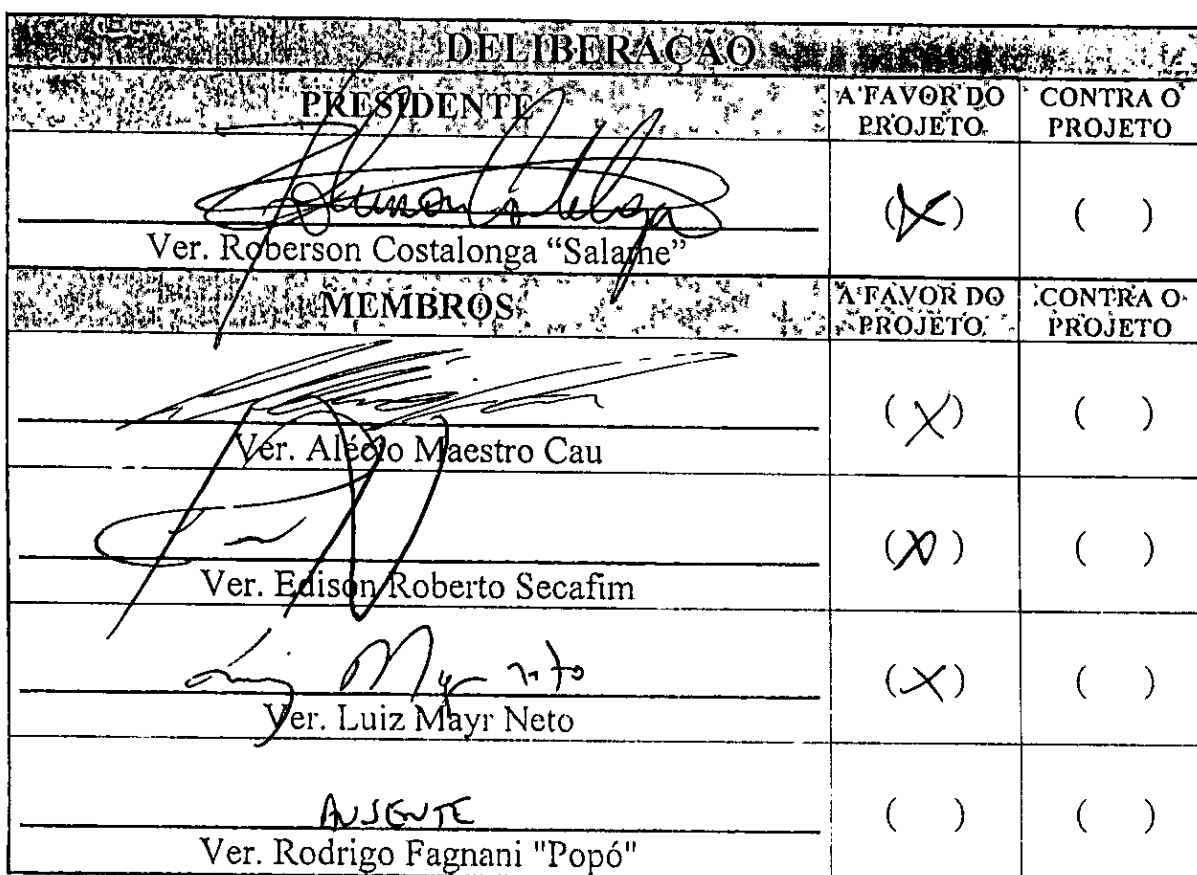 DELIBERAÇÃO
PRESIDENTE A FAVOR DO PROJETO CONTRA O PROJETO
(X) ( )
Ver. Roberson Costalonga “Salame”
MEMBROS A FAVOR DO PROJETO CONTRA O PROJETO
(X) ( )
Ver. Alécio Maestro Cau
(X) ( )
Ver. Edison Roberto Secafim
Luiz Mayr Neto (X) ( )
Ver. Luiz Mayr Neto
AUSENTE ( ) ( )
Ver. Rodrigo Fagnani "Popó"